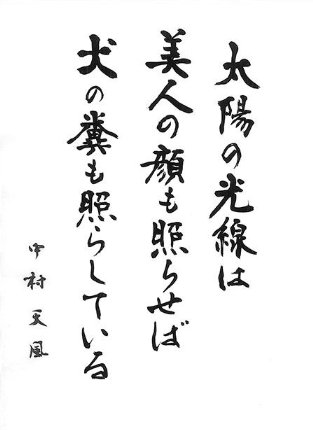 太陽の光線は
美人の顔も照らせば
犬の糞も照らしている
中村天風